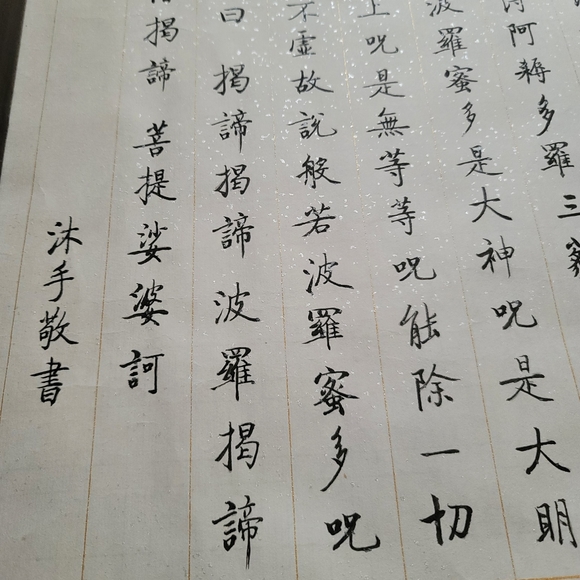 阿耨多羅三藐
波羅蜜多是大神呪是大明
上呪是無等等呪能除一切
不虛故說般若波羅蜜多呪
曰 揭諦揭諦 波羅揭諦
揭諦 菩提娑婆訶
沐手敬書